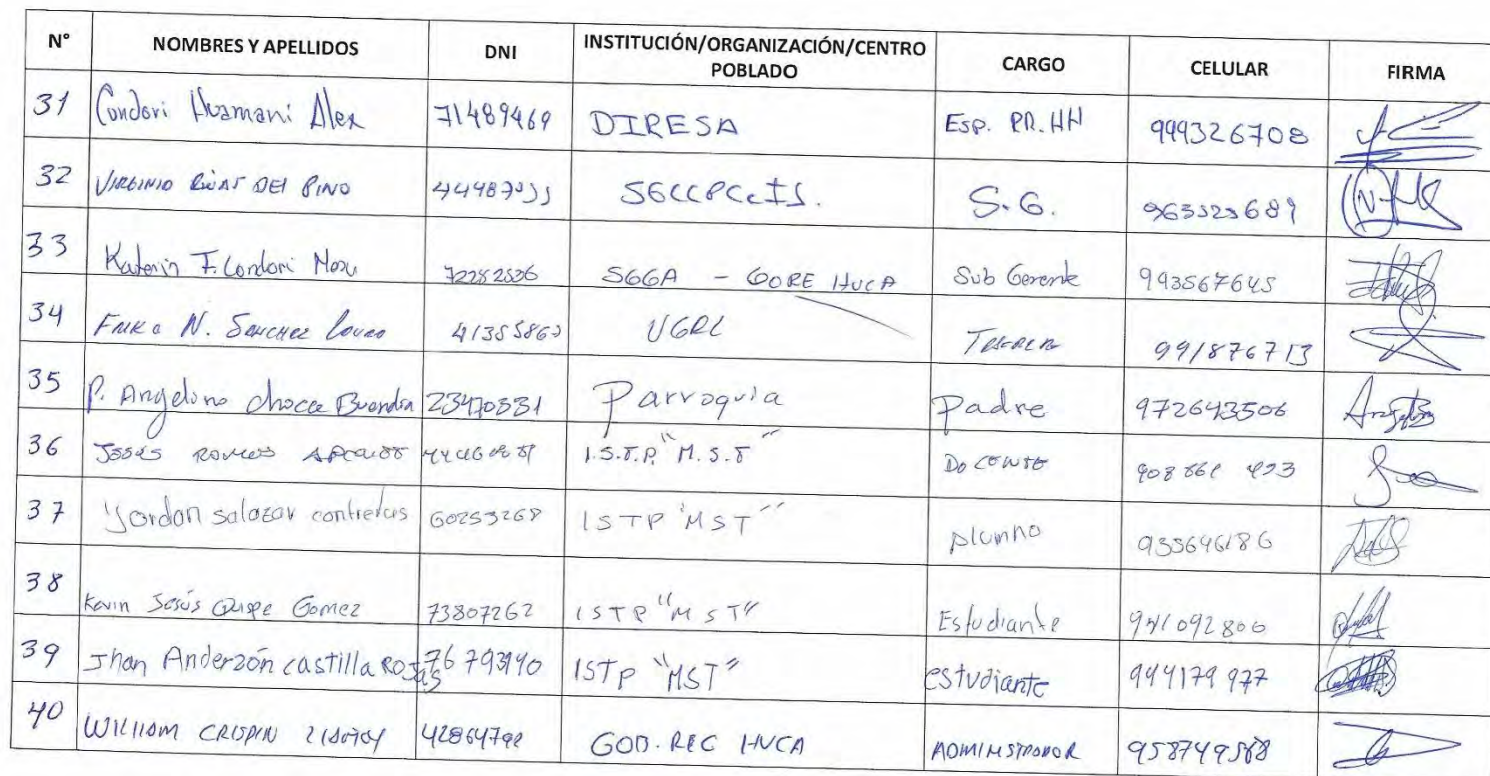 N° NOMBRES Y APELLIDOS DNI INSTITUCIÓN/ORGANIZACIÓN/CENTRO POBLADO CARGO CELULAR FIRMA
31 Condori Huamani Alex 71489469 DIRESA Esp. PR. HH 999326708
32 VIRGINIO DEL PINO SGCCPCeIS. S.G.
33 Katerin F. Condori 72282536 SGGA - GORE HUCA Sub Gerente 993567645
34 N. Sanchez 991876713
35 P. Angelino chocce Buendia 23470531 Parroquia Padre 972643506
36 I.S.T.P. "M.S.T" DOCENTE
37 Yordan salazar contreras 60253268 ISTP "MST" Alumno 935696186
38 Kevin Jesús Quispe Gomez 73807262 ISTP "MST" Estudiante 941092800
39 Jhan Anderzón castilla ROJAS 76793990 ISTP "MST" estudiante 944179977
40 WILLIAM CRISPIN GOB. REG HVCA ADMINISTRADOR